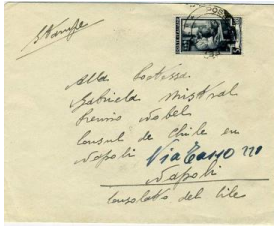 Stampe
Alla Contessa
Gabriela Mistral
Premio Nobel
Consul de Chile en
Napoli Via Tasso 220
Napoli
Consolato del Cile